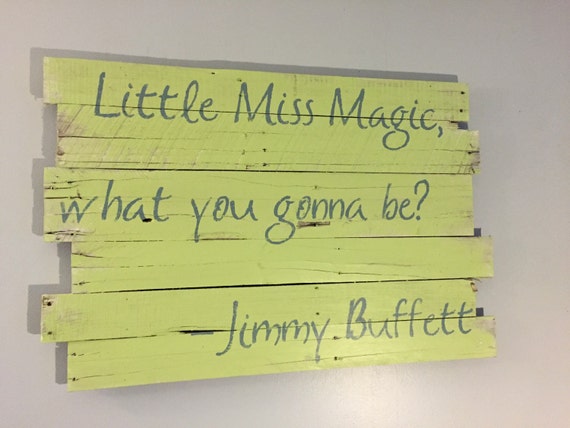 Little Miss Magic,
what you gonna be?
- Jimmy Buffett